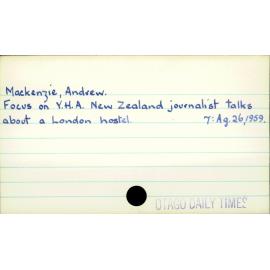 Mackenzie, Andrew.
Focus on Y.H.A. New Zealand journalist talks
about a London hostel. 7: Ag. 26, 1959.
OTAGO DAILY TIMES